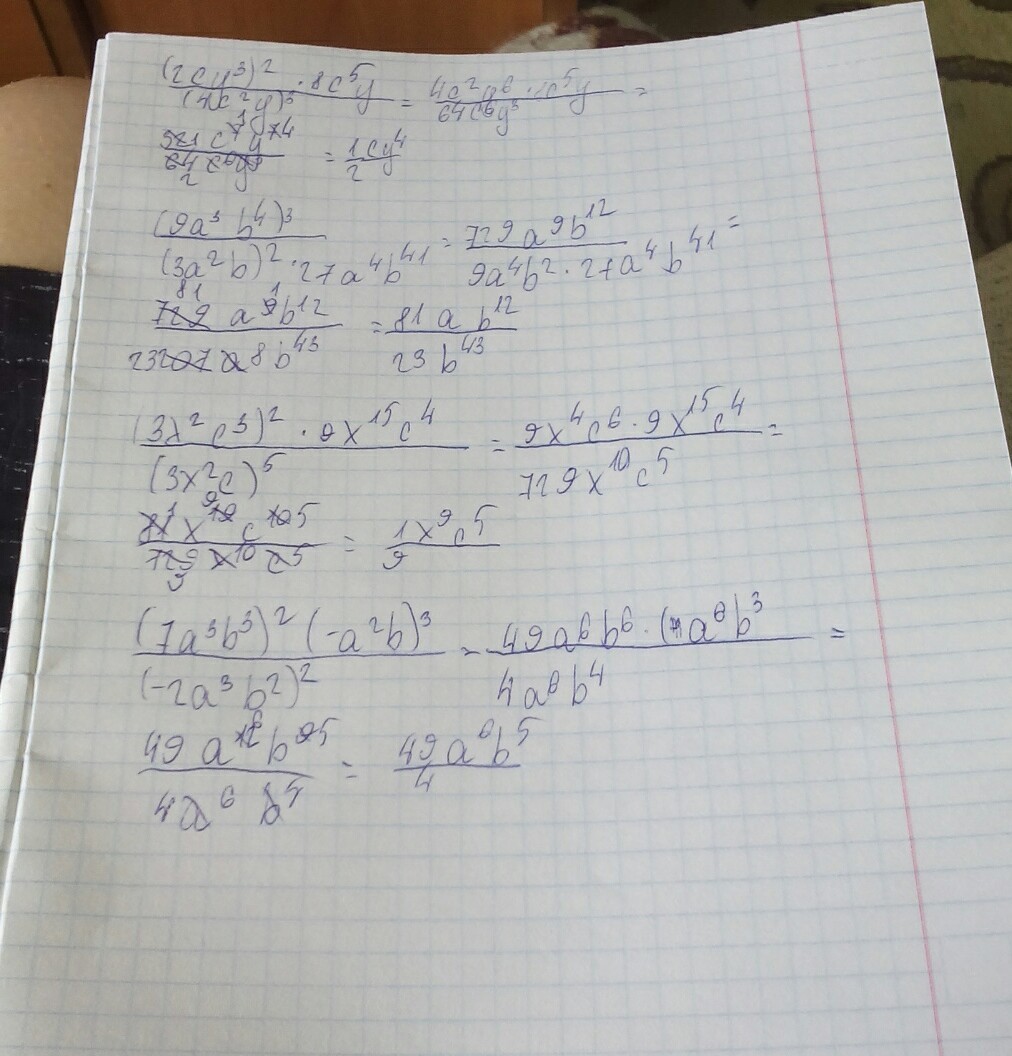 (2cy³)² · 8c⁵y / (4c²y)³ = 4c²y⁶ · 8c⁵y / 64c⁶y³ =
c⁷y⁷⁴ / 64 2 = 1cy⁴ / 2
(9a³b⁴)³ / (3a²b)² · 27a⁴b⁴¹ = 729a⁹b¹² / 9a⁴b² · 27a⁴b⁴¹ =
81 1
729 a⁹b¹² / a8b⁴³ = 81ab¹² / 23b⁴³
(3x²c³)² · 9x¹⁵c⁴ / (3x²c)⁵ = 9x⁴c⁶ · 9x¹⁵c⁴ / 729x¹⁰c⁵ =
81 1 x¹⁹ 9 c¹⁰ 5 / 729 9 x¹⁰ c⁵ = 1x⁹c⁵ / 9
(7a³b³)² (-a²b)³ / (-2a³b²)² = 49a⁶b⁶ · ( a⁶b³ / 4a⁶b⁴ =
49 a¹² b⁹ 5 / 4a⁶ b⁴ = 49a⁶b⁵ / 4